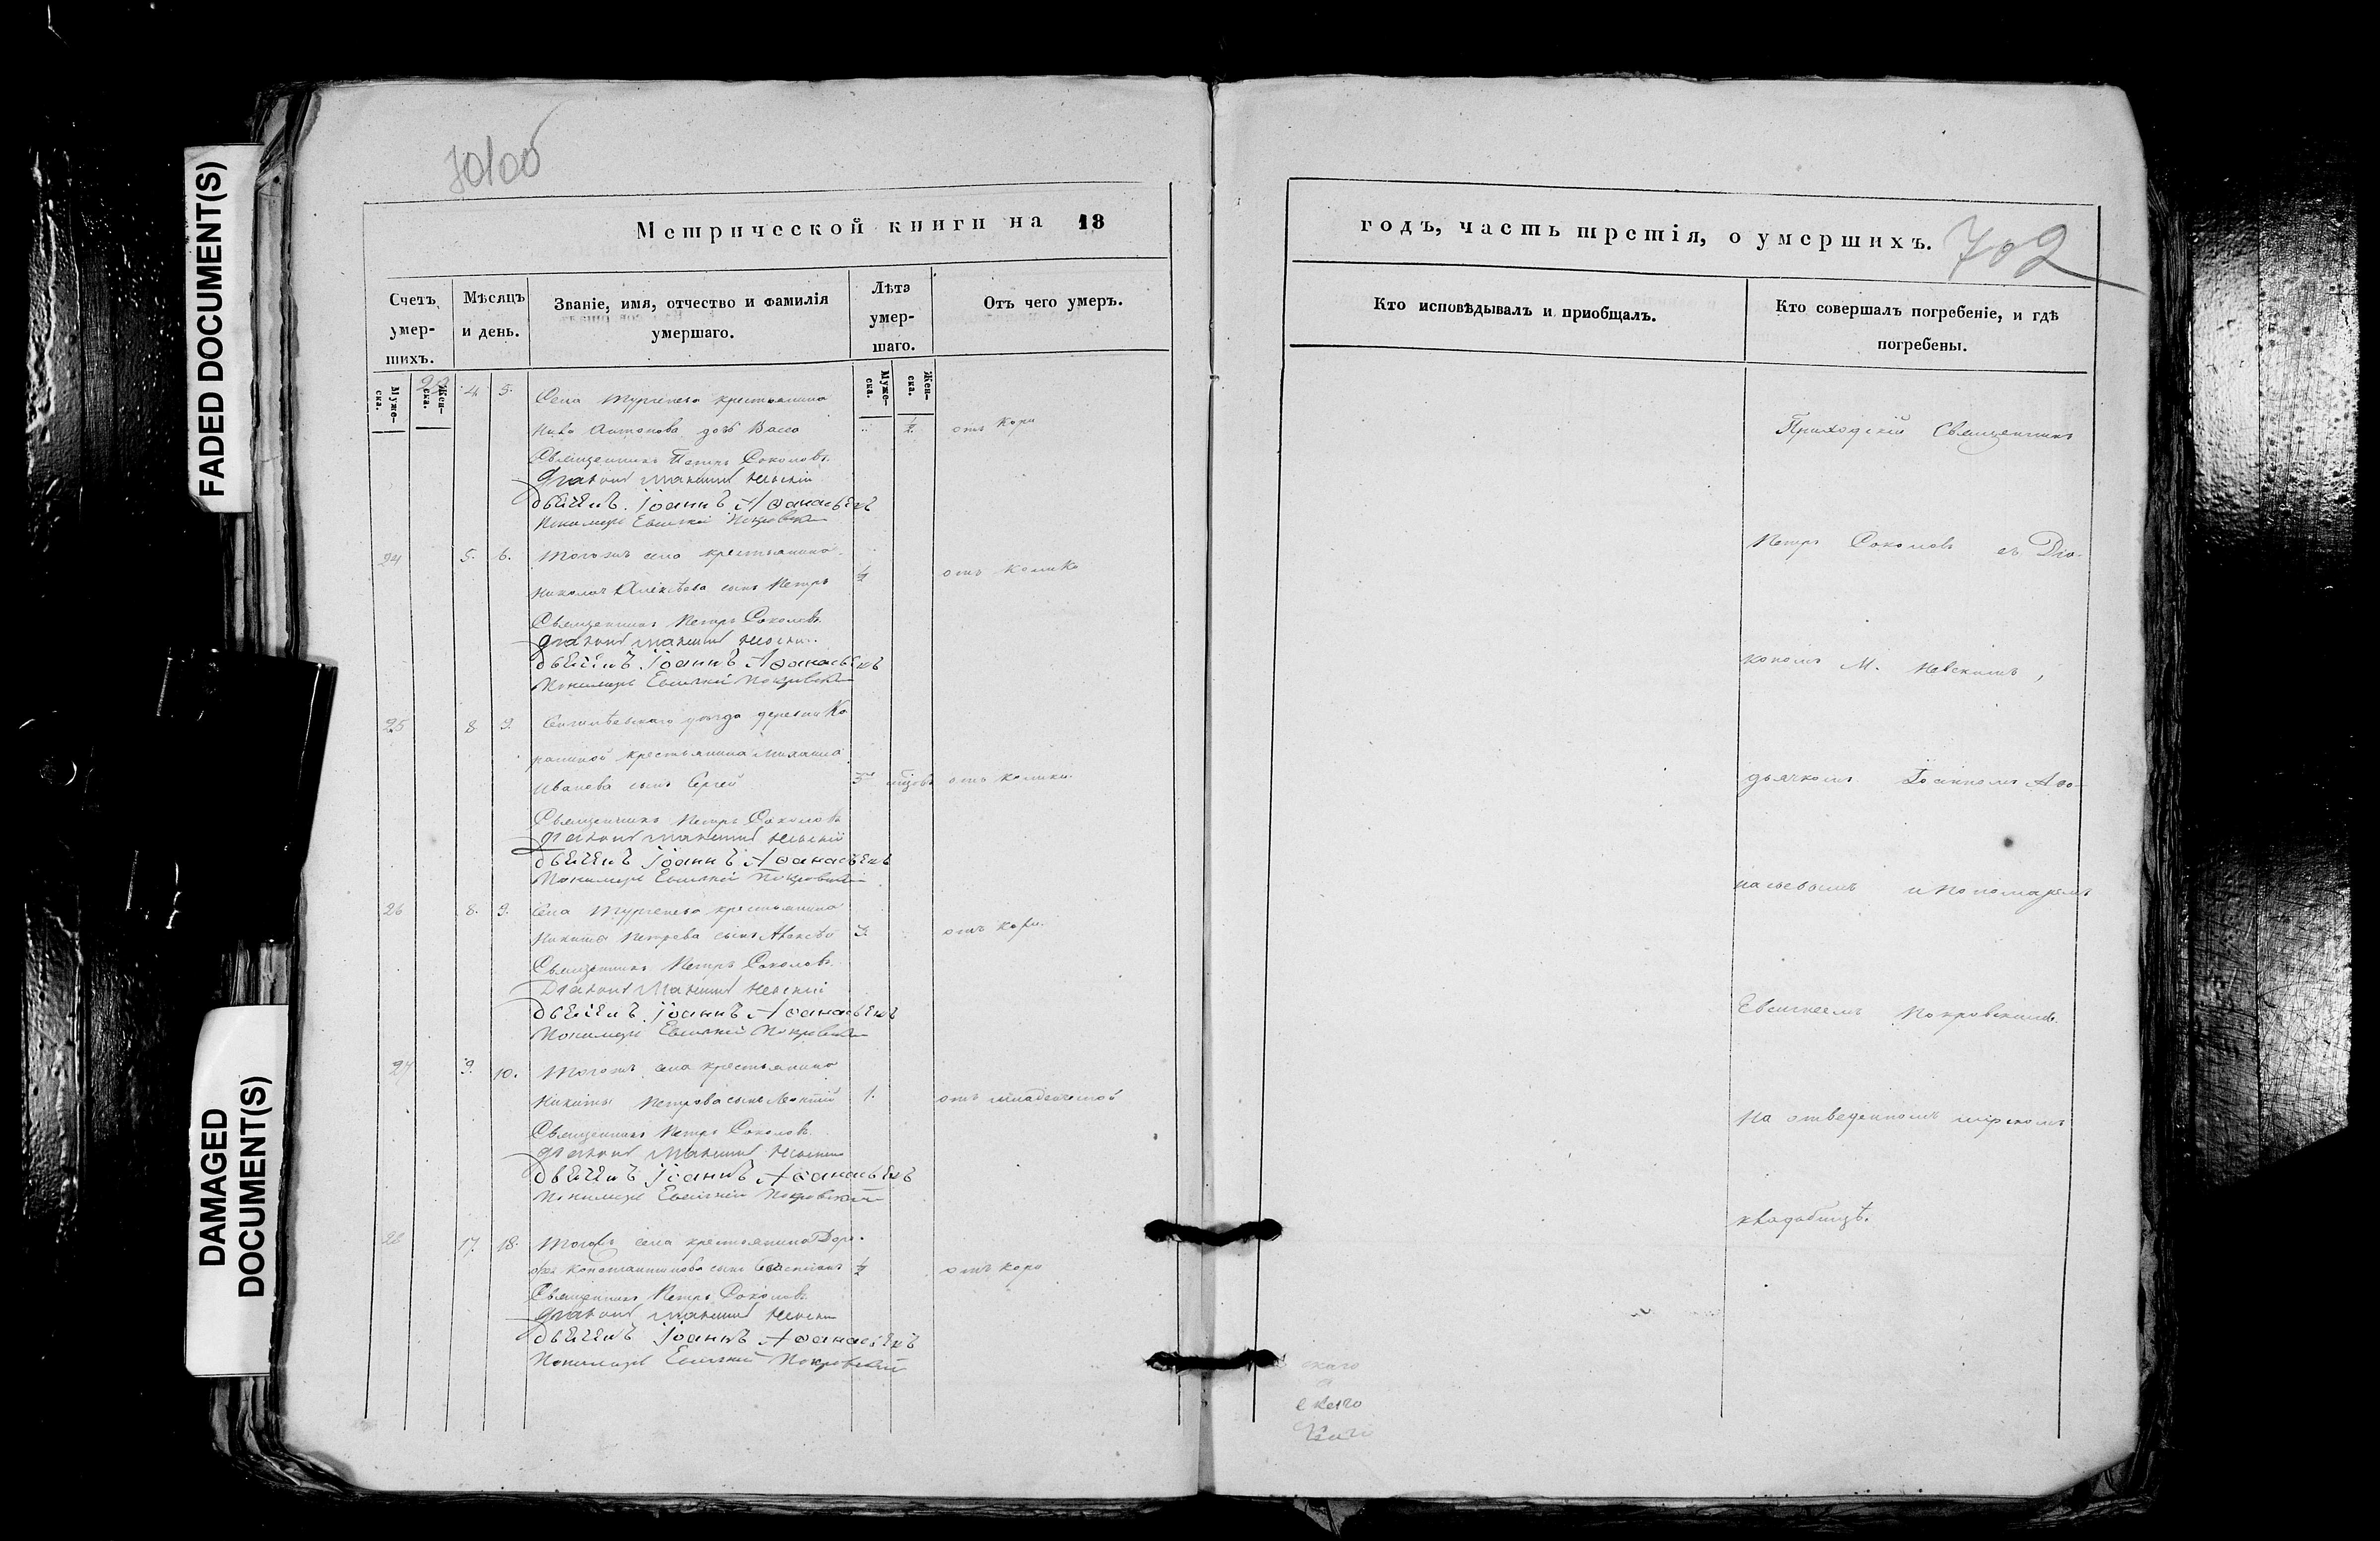 FADED DOCUMENT(S)
DAMAGED
DOCUMENT(S)
701об
Метрической книги на 18
Счетъ умер-шихъ.
Мѣсяцъ и день.
Званіе, имя, отчество и фамилія умершаго.
Лѣта умер-шаго.
Отъ чего умеръ.
Муже-ска.
Жен-ска.
Муже-ска.
Жен-ска.
4. 5. Села Тургенева крестьянина
Антонова дочь Васса ½ отъ кори
Священникъ Петръ Соколовъ.
Діаконъ Максимъ Невскій
Дьячекъ Іоаннъ Аѳанасьевъ
Пономарь Евсигній Покровскій
24 5. 6. Тогожъ села крестьянина
Николая Алексѣева сынъ Петръ ½ отъ колики
Священникъ Петръ Соколовъ
Діаконъ Максимъ Невскій
Дьячекъ Іоаннъ Аѳанасьевъ
Пономарь Евсигній Покровскій
25 8. 9. уѣзда деревни
крестьянина Михаила
Иванова сынъ Сергей отъ колики.
Священникъ Петръ Соколовъ
Діаконъ Максимъ Невскій
Дьячекъ Іоаннъ Аѳанасьевъ
Пономарь Евсигній Покровскій
26 8. 9. Села Тургенева крестьянина
Никита Петрова сынъ 3. отъ кори.
Священникъ Петръ Соколовъ
Діаконъ Максимъ Невскій
Дьячекъ Іоаннъ Аѳанасьевъ
Пономарь Евсигній Покровскій
27 9. 10. Тогожъ села крестьянина
Никиты Петрова сынъ Леонтій 1. отъ младенческой
Священникъ Петръ Соколовъ
Діаконъ Максимъ Невскій
Дьячекъ Іоаннъ Аѳанасьевъ
Пономарь Евсигній Покровскій
28 17. 18. Тогожъ села крестьянина Доро-
фея Константинова сынъ ½ отъ кори
Священникъ Петръ Соколовъ
Діаконъ Максимъ Невскій
Дьячекъ Іоаннъ Аѳанасьевъ
Пономарь Евсигній Покровскій
годъ, часть третія, о умершихъ.
702
Кто исповѣдывалъ и приобщалъ.
Кто совершалъ погребеніе, и гдѣ погребены.
Приходскій Священникъ
Петръ Соколовъ съ Діа-
кономъ М. Невскимъ,
дьячкомъ Іоанномъ Аѳа-
насьевымъ и пономаремъ
Евсигнеемъ Покровскимъ
на отведенномъ мірскомъ
кладбищѣ.